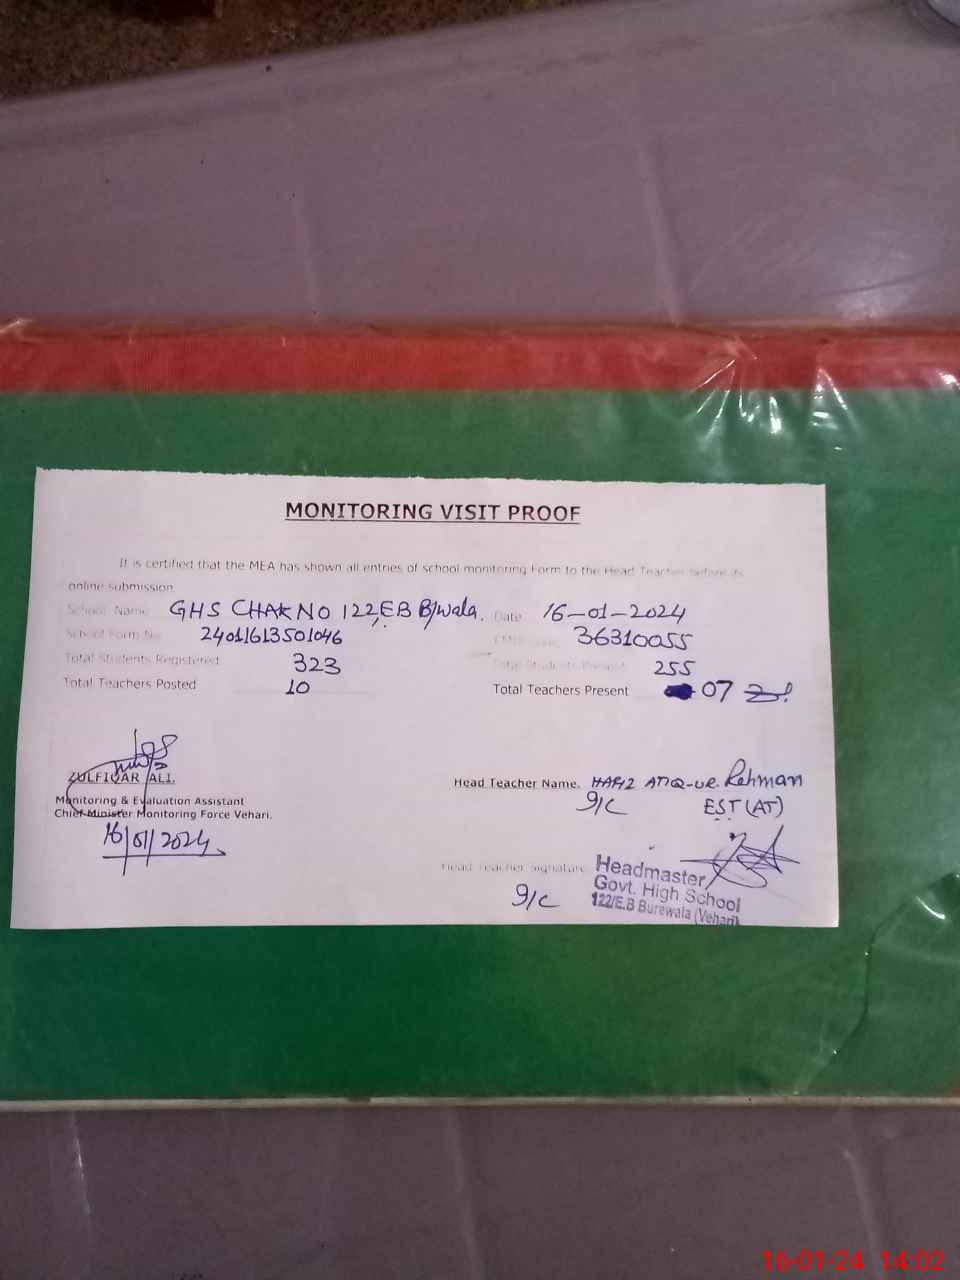 MONITORING VISIT PROOF
It is certified that the MEA has shown all entries of school monitoring Form to the Head Teacher before its
online submission
School Name GHS CHAK NO 122, EB B/wala. Date 16-01-2024
School Form No 2401613501046 EMIS Code 36310055
Total Students Registered 323 Total Students Present 255
Total Teachers Posted 10 Total Teachers Present 07
ZULFIQAR ALI.
Monitoring & Evaluation Assistant
Chief Minister Monitoring Force Vehari.
16/01/2024
Head Teacher Name. HAFIZ ATIQ-UR-Rehman
I/C EST (AT)
Head Teacher Signature
I/C
Headmaster
Govt. High School
122/E.B Burewala (Vehari)
16-01-24 14:02